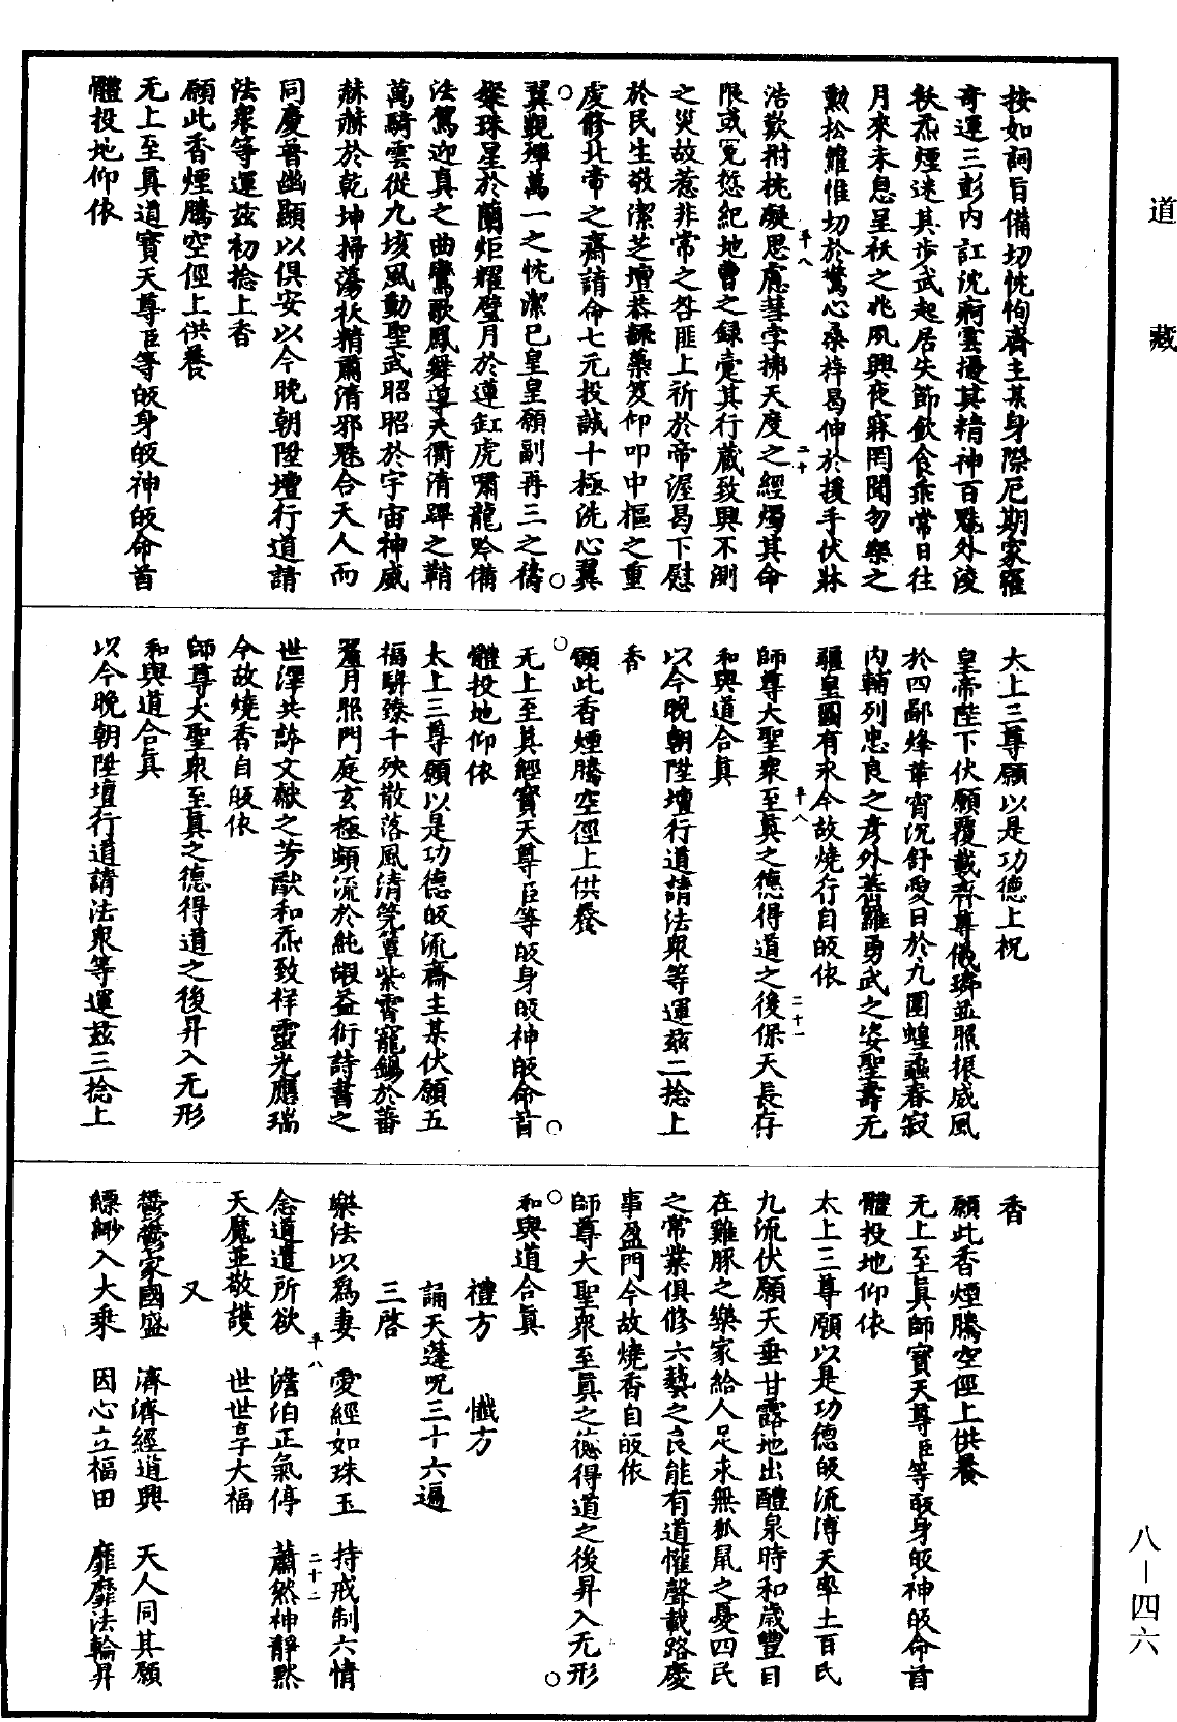 道藏
按如詞旨備切忱恂齋主某身際厄期家罹
奇運三彭內訌沈痾雲擾其精神百魅外淩
祅炁煙迷其步武起居失節飲食乖常日往
月來未息呈祅之兆夙興夜寐罔聞勿藥之
勲松蘿惟切於驚心桑梓曷伸於援手伏牀
浩歎拊枕凝思慮彗孛拂天度之經燭其命
限或冤愆紀地曹之録疐其行藏致興不測
之災故惹非常之咎匪上祈於帝渥曷下慰
於民生敬潔芝壇恭録蘂笈仰叩中樞之重
虔修北帝之齋請命七元投誠十極洗心翼
翼覬殫萬一之忱潔己皇皇願副再三之禱
粲珠星於蘭炬耀璧月於蓮缸虎嘯龍吟備
法駕迎真之曲鸞歌鳳舞導天衢清蹕之鞘
萬騎雲從九垓風動聖武昭昭於宇宙神威
赫赫於乾坤掃蕩祅精肅清邪魅合天人而
同慶普幽顯以俱安以今晚朝陞壇行道請
法眾等運兹初捻上香
願此香煙騰空徑上供養
无上至真道寶天尊臣等皈身皈神皈命首
體投地仰依
平八
二十
太上三尊願以是功德上祝
皇帝陛下伏願覆載齊尊儀璘並照振威風
於四鄙烽華宵沉舒愛日於九圍蝗蟊春寂
內輔列忠良之彥外蕃羅勇武之姿聖壽无
疆皇圖有永今故燒行自皈依
師尊大聖衆至真之德得道之後保天長存
和與道合真
以今晚朝陞壇行道請法眾等運兹二捻上
香
願此香煙騰空徑上供養
无上至真經寶天尊臣等皈身皈神皈命首
體投地仰依
太上三尊願以是功德皈流齋主某伏願五
福駢臻千殃散落風清筦簟紫霄寵錫於蕃
釐月照門庭玄極頻流於純嘏益衍詩書之
世澤共訴文獻之芳猷和炁致祥靈光應瑞
今故燒香自皈依
師尊大聖衆至真之德得道之後昇入无形
和與道合真
以今晚朝陞壇行道請法眾等運兹三捻上
平八
二十一
香
願此香煙騰空徑上供養
无上至真師寶天尊臣等皈身皈神皈命首
體投地仰依
太上三尊願以是功德皈流溥天率土百民
九流伏願天垂甘露地出醴泉時和歲豐目
在雞豚之樂家給人足求無狐鼠之憂四民
之常業俱修六藝之良能有道懽聲載路慶
事盈門今故燒香自皈依
師尊大聖衆至真之德得道之後昇入无形
和與道合真
禮方　懺方
誦天蓬呪三十六遍
三啓
樂法以爲妻　愛經如珠玉　持戒制六情
念道遣所欲　澹泊正氣停　蕭然神靜默
天魔並敬護　世世享大福
又
鬱鬱家國盛　濟濟經道興　天人同其願
縹緲入大乘　因心立福田　靡靡法輪昇
平八
二十二
八—四六